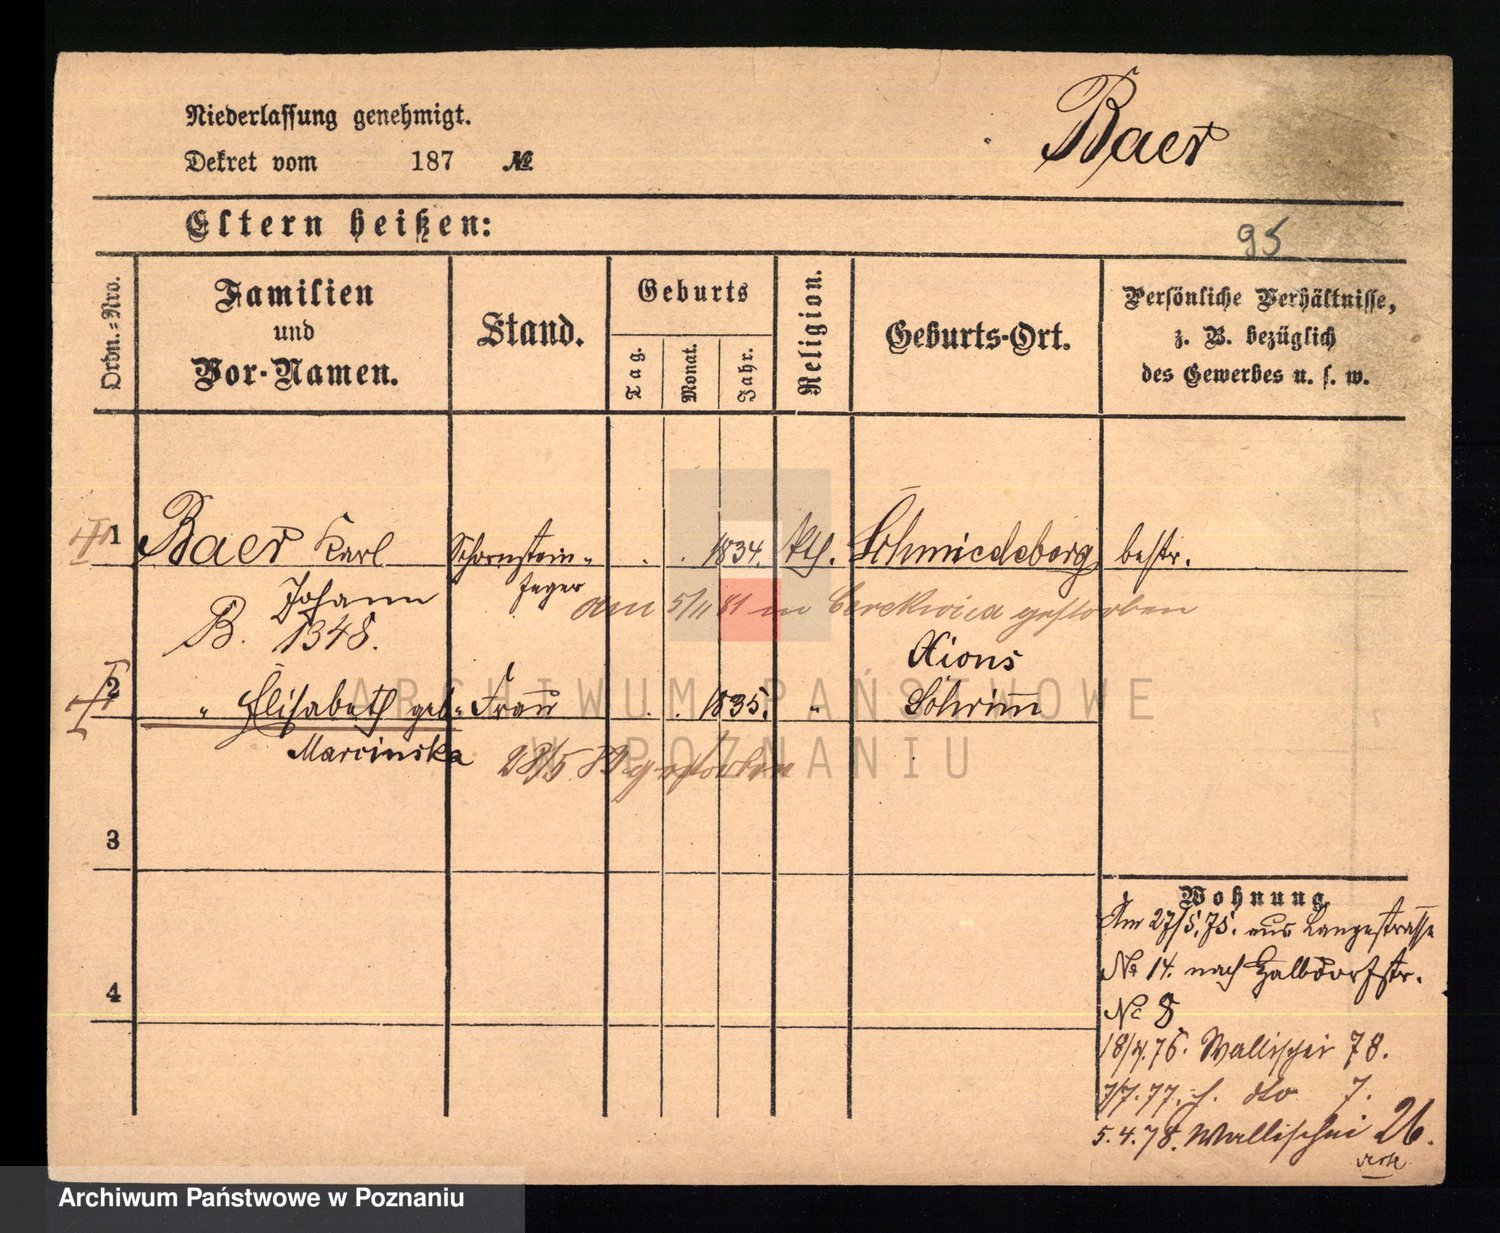 Niederlassung genehmigt.
Dekret vom 187 №
Baer
Eltern heißen:
95
Ordn.-Nro.
Familien
und
Vor-Namen.
Stand.
Geburts
Tag.
Monat.
Jahr.
Religion.
Geburts-Ort.
Persönliche Verhältnisse,
z. B. bezüglich
des Gewerbes u. s. w.
1 Baer Karl Schornstein- . . 1834. kth. Schmiedeberg bestr.
Johann feger
am 5/11 81 in Cerekwica gestorben
B. 1348.
Xions
2 " Elisabeth geb. Frau . . 1835. " Schrimm
Marcinska
28/5 89 gestorben
3
4
Wohnung.
Am 27/5.75. aus Langestrasse
№ 14. nach Halbdorfstr.
№ 8
18/4.76. Wallischei 78.
7/7.77. dto 7.
5.4.78. Wallischei 26.
ARCHIWUM PAŃSTWOWE
W POZNANIU
Archiwum Państwowe w Poznaniu